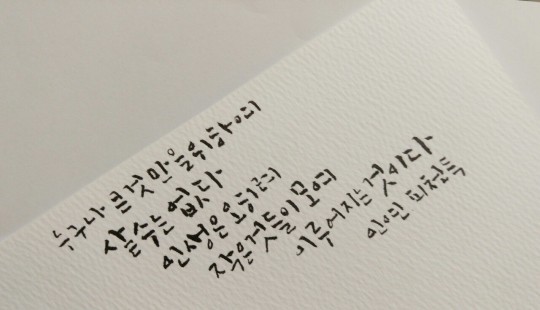 누구나 큰 것만을 위하여
살 수는 없다
인생은 오히려
작은 것들이 모여
이루어지는 것이다